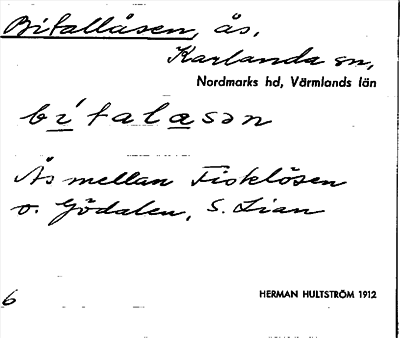 Bitallåsen, ås.
Karlanda sn,
Nordmarks hd, Värmlands län
bi´talasən
Ås mellan Fisklösen
o. Gödalen, S. Lian
HERMAN HULTSTRÖM 1912
6